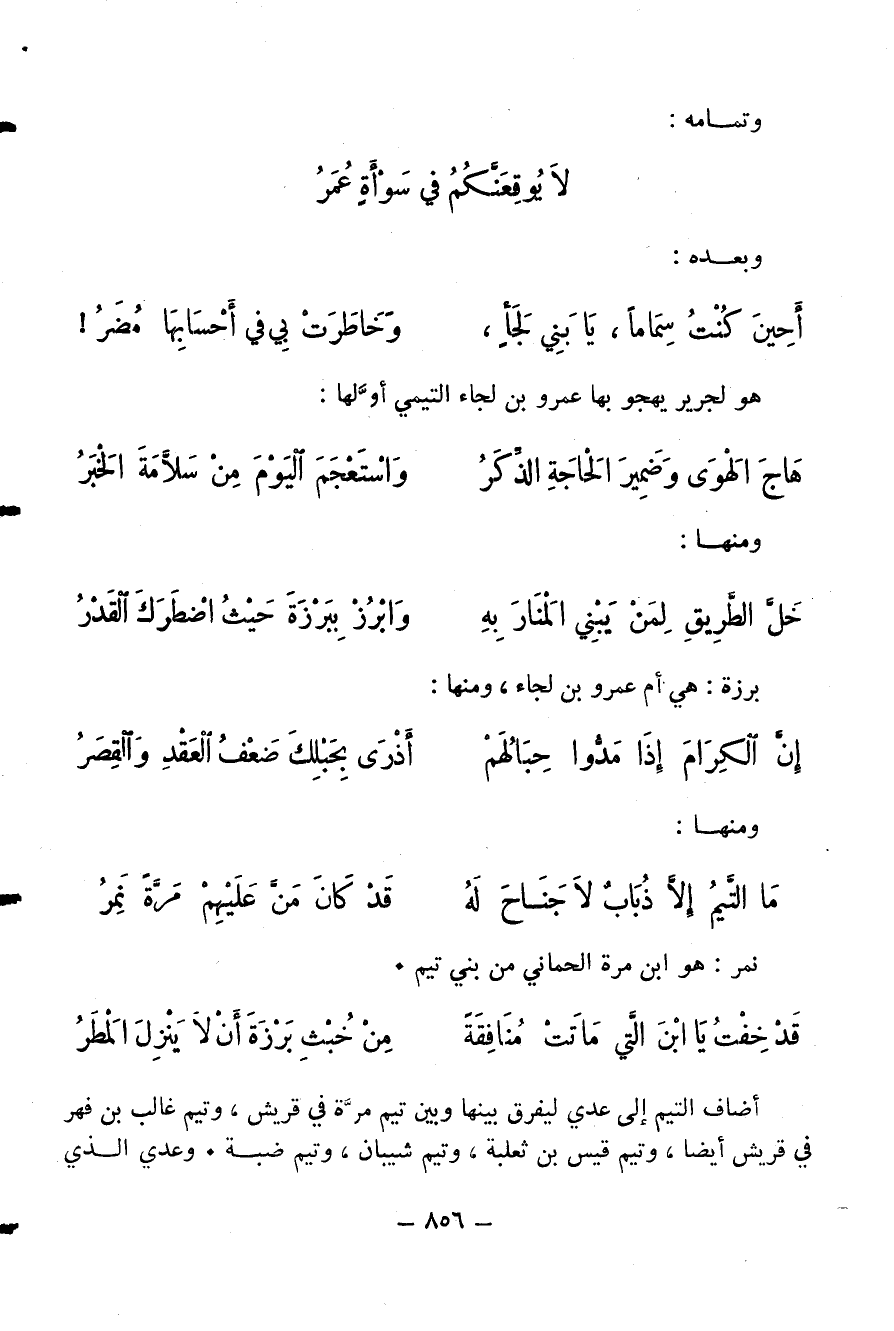 وتمـــامه :
لاَ يُوقِعَنَّكُمُ في سَوْأَةٍ عُمَرُ
وبعـــده :
أَحِينَ كُنْتُ سِمَاماً ، يَا بَنِي لَجَأٍ ، وَخَاطَرَتْ بِي في أَحْسَابِهَا مُضَرُ !
هو لجرير يهجو بها عمرو بن لجاء التيمي أوَّلها :
هَاجَ الهْوَى وَضَمِيرَ الحَاجَةِ الذِّكَرُ وَاسْتَعْجَمَ الْيَوْمَ مِنْ سَلاَّمَةَ الخَبَرُ
ومنهـــا :
خَلَّ الطَّرِيقِ لِمَنْ يَبْنِي المَنَارَ بِهِ وَابْرُزْ بِبَرْزَةَ حَيْثُ اضْطَرَكَ الْقَدْرُ
برزة : هي أم عمرو بن لجاء ، ومنها :
إِنَّ الْكِرَامَ إِذَا مَدُّوا حِبَالَهُمْ أَذْرَى بِحَبْلِكَ ضَعْفُ الْعَقْدِ وَالْقِصَرُ
ومنهـــا :
مَا التَّيمُ إِلاَّ ذُبَابٌ لاَ جَنَـــاحَ لَهُ قَدْ كَانَ مَنَّ عَلَيْهِمْ مَرَّةً نَمِرُ
نمر : هو ابن مرة الحماني من بني تيم ٠
قَدْ خِفْتُ يَا ابْنَ الَّتي مَاتَتْ مُنَافِقَةً مِنْ خُبْثِ بَرْزَةَ أَنْ لاَ يَنْزِلَ المَطَرُ
أضاف التيم إلى عدي ليفرق بينها وبين تيم مرَّة في قريش ، وتيم غالب بن فهر
في قريش أيضا ، وتيم قيس بن ثعلبة ، وتيم شيبان ، وتيم ضبـــة ٠ وعدي الـــذي
– ٨٥٦ –